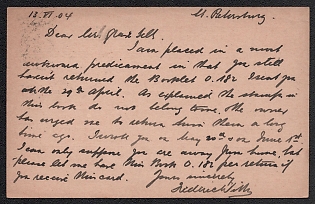 12. VI 04
St. Petersburg.
Dear Sir,
I am placed in a most
awkward predicament in that you still
haven't returned the Booklet O. 182 I sent you
on the 29th April. As explained the stamps in
this book do not belong to me, the owner
has urged me to return them a long
time ago. I wrote you on May 20th & on June 1st.
I can only suppose you are away from home, but
please let me have this Book O. 182 per return if
you receive this card.
Yours sincerely
Frederick